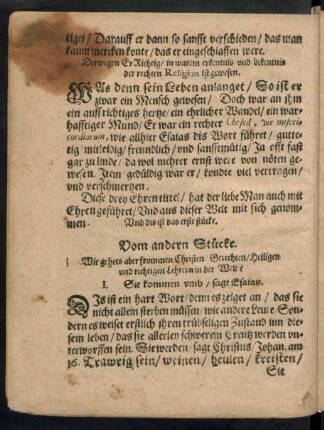 tiget / Darauff er dann so sanffte verschieden / das man
kaum mercken konte / das er eingeschlaffen were.
Derwegen Er Richtig / in warem erkentnis vnd bekentnis
der rechten Religion ist gewesen.
WAs denn sein Leben anlanget / So ist er
zwar ein Mensch gewesen / Doch war an jhm
ein auffrichtiges hertze / ein ehrlicher Wandel / ein war-
hafftiger Mund / Er war ein rechter Chesed, vir miseri-
cordiarum, wie allhier Esaias dis Wort führet / gutte-
tig mitleidig / freundlich / vnd sanfftmütig / Ja offt fast
gar zu linde / da wol mehrer ernst were von nöten ge-
wesen. Item gedüldig war er / kondte viel vertragen /
vnd verschmertzen.
Diese drey Ehrentittel / hat der liebe Man auch mit
Ehren geführet / Vnd aus dieser Welt mit sich genom-
men. Vnd dis ist das erste stücke.
Vom andern Stücke.
Wie gehets aber frommen Christen Gerechten / Heiligen
vnd richtigen Lehrern in der Welt?
I. Sie kommen vmb / sagt Esaias.
DIs ist ein hart Wort / denn es zeiget an / das sie
nicht allein sterben müssen / wie andere Leute / Son-
dern es weiset erstlich jhren trübseligen Zustand inn die-
sem leben / das sie allerley schwerem Creutz werden vn-
terworffen sein. Sie werden / sagt Christus / Johan. am
16. Trawrig sein / weinen / heulen / kreisten /
Sie